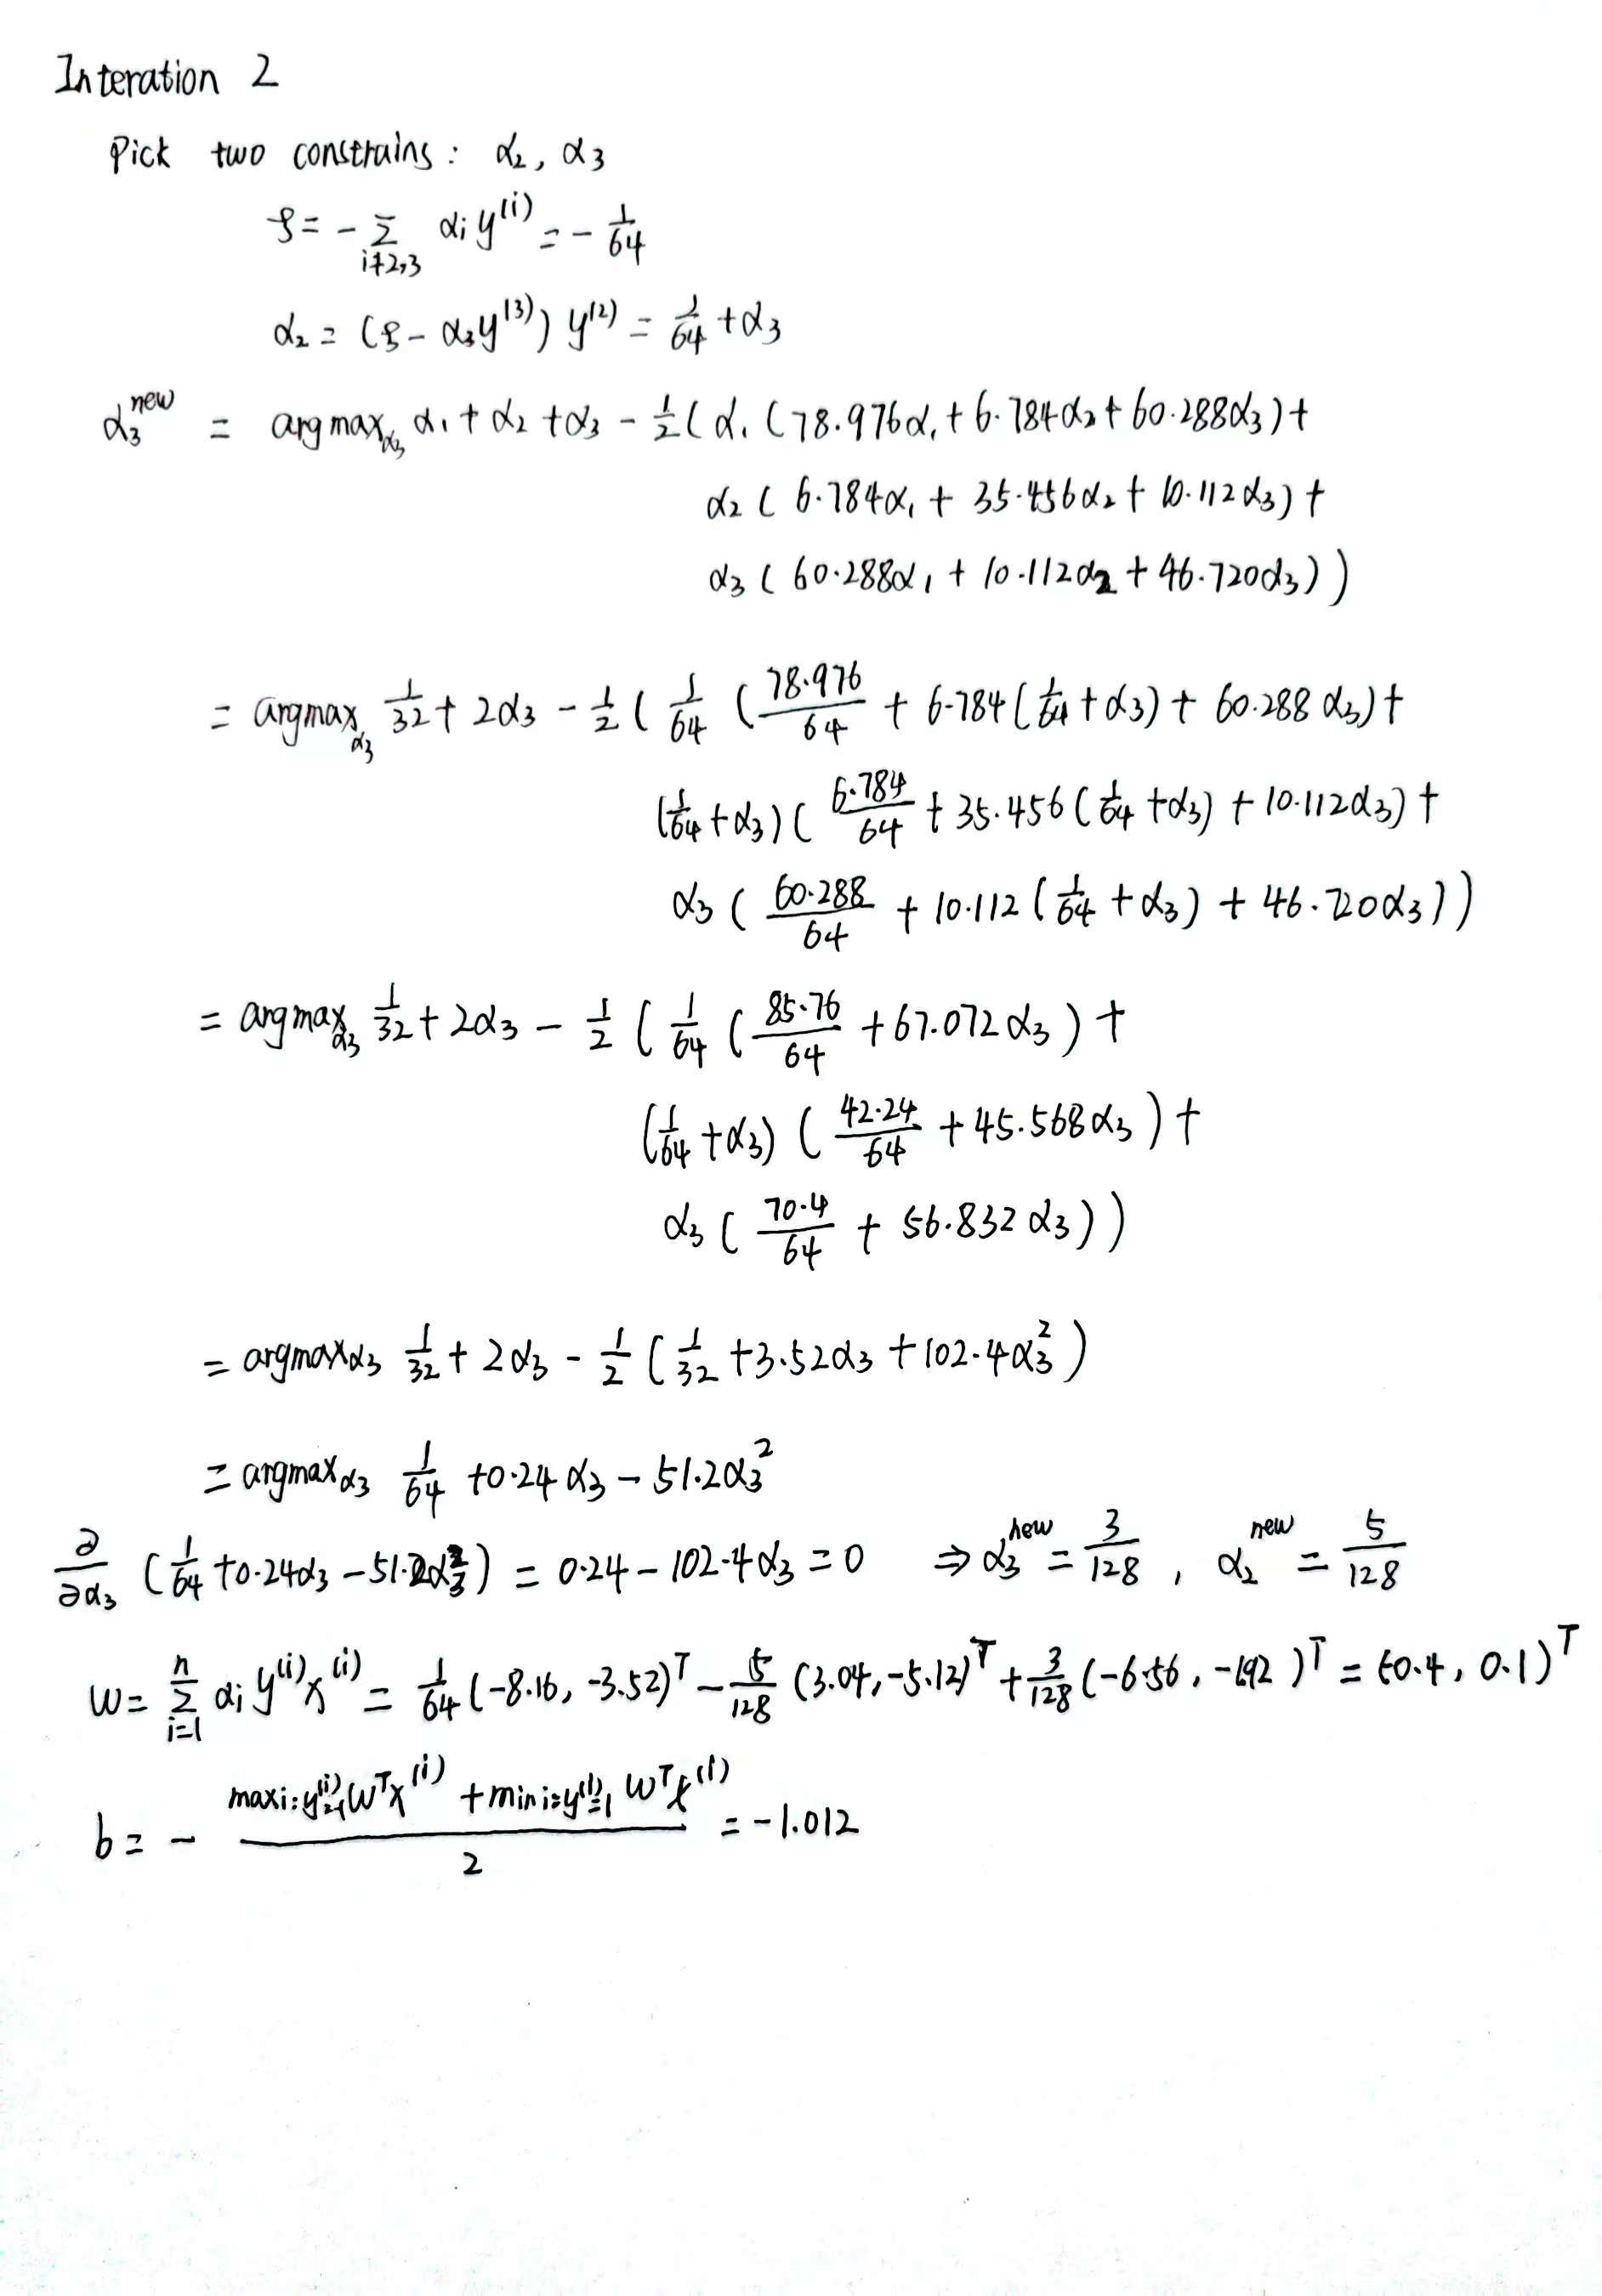 Interation 2
Pick two constrains: α₂, α₃
ξ = - Σ_{i≠2,3} αᵢ y⁽ⁱ⁾ = - 1/64
α₂ = (ξ - α₃y⁽³⁾) y⁽²⁾ = 1/64 + α₃
α₃^new = argmax_{α₃} α₁ + α₂ + α₃ - 1/2 ( α₁ (78.976α₁ + 6.784α₂ + 60.288α₃) +
α₂ ( 6.784α₁ + 35.456α₂ + 10.112α₃) +
α₃ ( 60.288α₁ + 10.112α₂ + 46.720α₃) )
= argmax_{α₃} 1/32 + 2α₃ - 1/2 ( 1/64 ( 78.976/64 + 6.784 ( 1/64 + α₃) + 60.288 α₃) +
( 1/64 + α₃) ( 6.784/64 + 35.456 ( 1/64 + α₃) + 10.112α₃) +
α₃ ( 60.288/64 + 10.112 ( 1/64 + α₃) + 46.720α₃) )
= argmax_{α₃} 1/32 + 2α₃ - 1/2 ( 1/64 ( 85.76/64 + 67.072 α₃ ) +
( 1/64 + α₃) ( 42.24/64 + 45.568 α₃ ) +
α₃ ( 70.4/64 + 56.832 α₃ ) )
= argmax_{α₃} 1/32 + 2α₃ - 1/2 ( 1/32 + 3.52α₃ + 102.4α₃² )
= argmax_{α₃} 1/64 + 0.24 α₃ - 51.2α₃²
∂/∂α₃ ( 1/64 + 0.24α₃ - 51.2α₃² ) = 0.24 - 102.4α₃ = 0 ⇒ α₃^new = 3/128 , α₂^new = 5/128
w = Σ_{i=1}^n αᵢ y⁽ⁱ⁾x⁽ⁱ⁾ = 1/64 (-8.16, -3.52)ᵀ - 5/128 (3.04, -5.12)ᵀ + 3/128 (-6.56, -1.92)ᵀ = (-0.4, 0.1)ᵀ
b = - (max_{i:y⁽ⁱ⁾=-1} wᵀx⁽ⁱ⁾ + min_{i:y⁽ⁱ⁾=1} wᵀx⁽ⁱ⁾)/2 = -1.012